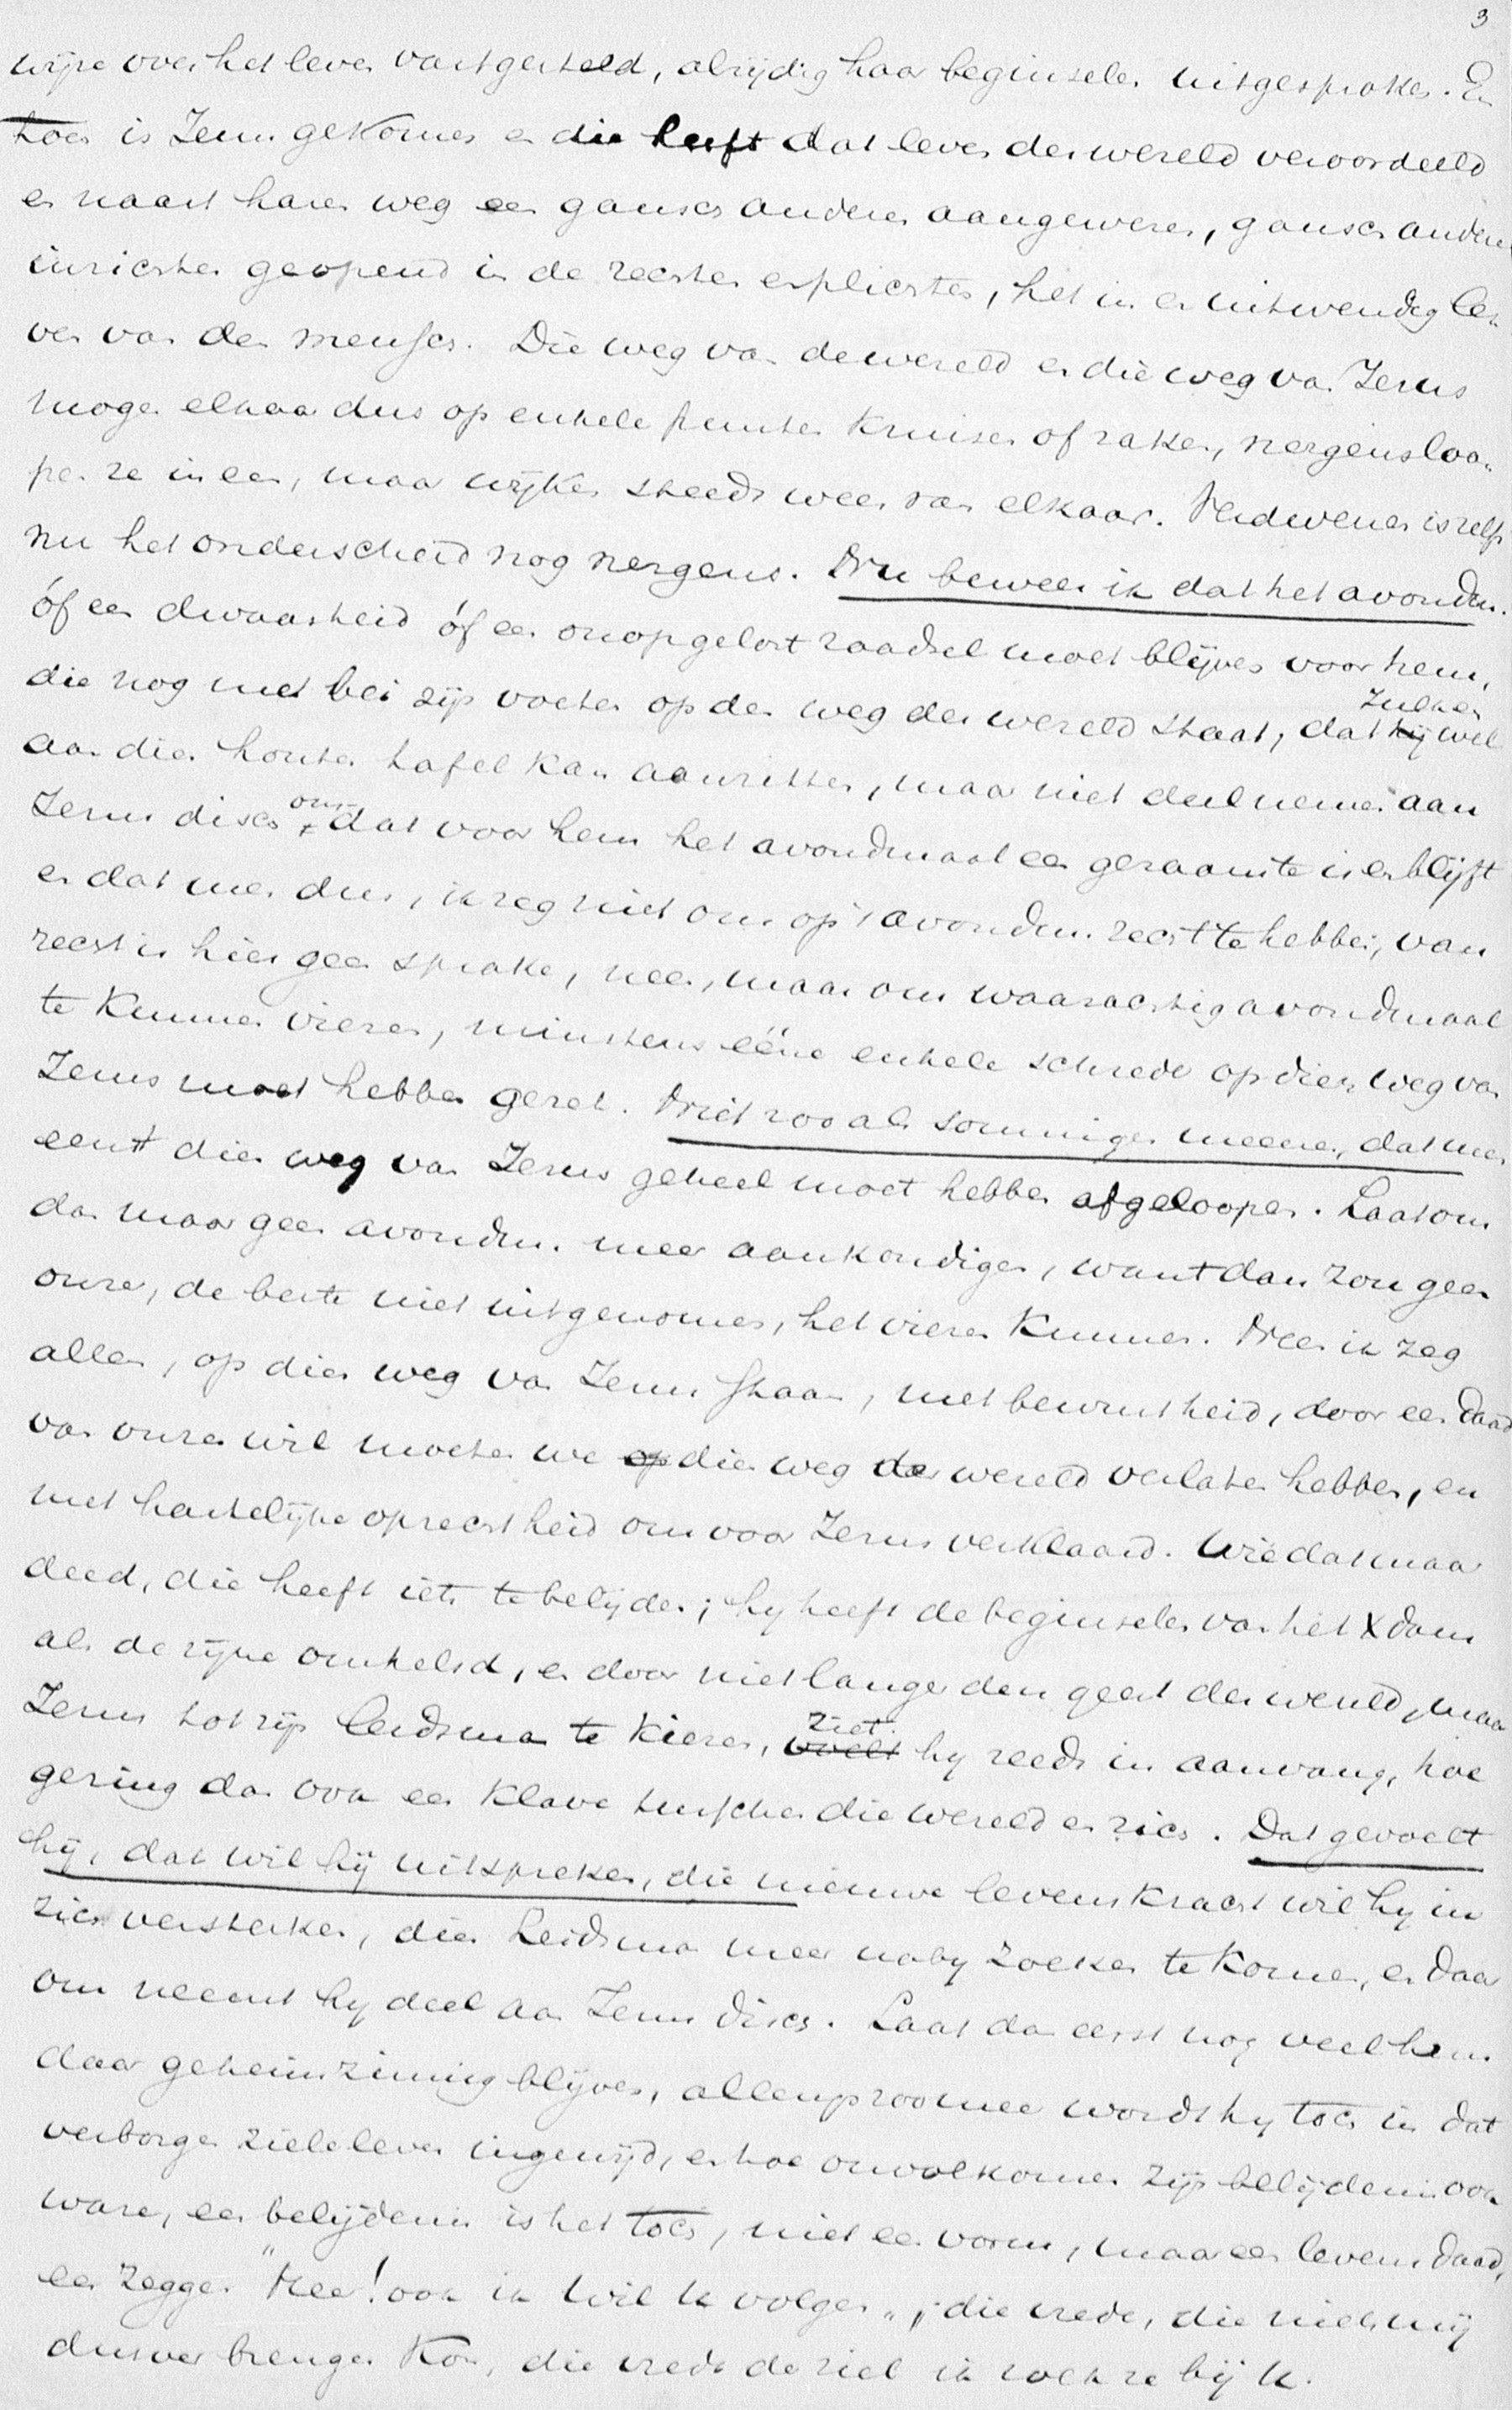 3
wijze over het leven vastgesteld, alzijdig haar beginselen uitgesproken. En
toen is Jezus gekomen en die heeft dat leven der wereld veroordeeld
en naast haren weg een gansch anderen aangewezen, gansch andere
inzichten geopend in de rechten en plichten, het in en uitwendig le-
ven van den mensch. Die weg van de wereld en die weg van Jezus
mogen elkaar dus op enkele punten kruisen of raken, nergens loo-
pen ze in een, maar wijken steeds weer van elkaar. Verdwenen is zelfs
nu het onderscheid nog nergens. Nu beweer ik dat het avondm.
óf een dwaasheid óf een onopgelost raadsel moet blijven voor hem,
die nog met bei zijn voeten op den weg der wereld staat, dat hij wel
zulken
aan dien houten tafel kan aanzitten, maar niet deelnemen aan
Jezus disch omdat voor hem het avondmaal een geraamte is en blijft
en dat men dus, ik zeg niet om op 't avondm. recht te hebben, van
recht is hier geen sprake, neen, maar om waarachtig avondmaal
te kunnen vieren, minstens ééne enkele schrede op dien weg van
Jezus moet hebben gezet. Niet zooals sommigen meenen, dat men
eerst dien weg van Jezus geheel moet hebben afgeloopen. Laat ons
dan maar geen avondm. meer aankondigen, want dan zou geen
onzer, de beste niet uitgenomen, het vieren kunnen. Neen ik zeg
alleen, op dien weg van Jezus staan, met bewustheid, door een daad
van onzen wil moeten we op dien weg der wereld verlaten hebben, en
met hartelijke oprechtheid ons voor Jezus verklaard. Wie dat maar
deed, die heeft iets te belijden; hy heeft de beginselen van het Xdom
als de zijne omhelsd, en door niet langer den geest der wereld, maar
Jezus tot zijn leidsman te kiezen, voelt ziet hy reeds in aanvang, hoe
gering dan ook een klove tusschen die wereld en zich. Dat gevoelt
hij, dat wil hij uitspreken, die nieuwe levenskracht wil hy in
zich versterken, dien Leidsman meer naby zoeken te komen, en daar
om neemt hy deel aan Jezus disch. Laat dan eerst nog veel hem
daar geheimzinnig blijven, allengs zoo mee wordt hy toch in dat
verborgen zieleleven ingewijd, en hoe onvolkomen zijn belijdenis ook
ware, een belijdenis is het toch, niet een vorm, maar een levensdaad,
een zeggen "Heer! ook ik wil U volgen", die vrede, die niets mij
dusver brengen kon, die vrede der ziel ik zoek ze bij U.